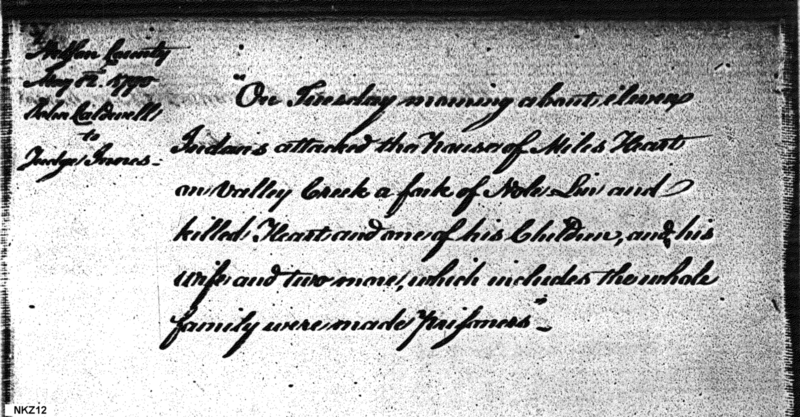 Nelson County
May 12th. 1790
John Caldwell
to
Judge Innes -
"On Tuesday morning about eleven
Indians attacked the house of Miles Heart
on Valley Creek a fork of Nole Lin and
killed Heart and one of his Children, and his
wife and two more, which includes the whole
family were made prisoners" -
NKZ12